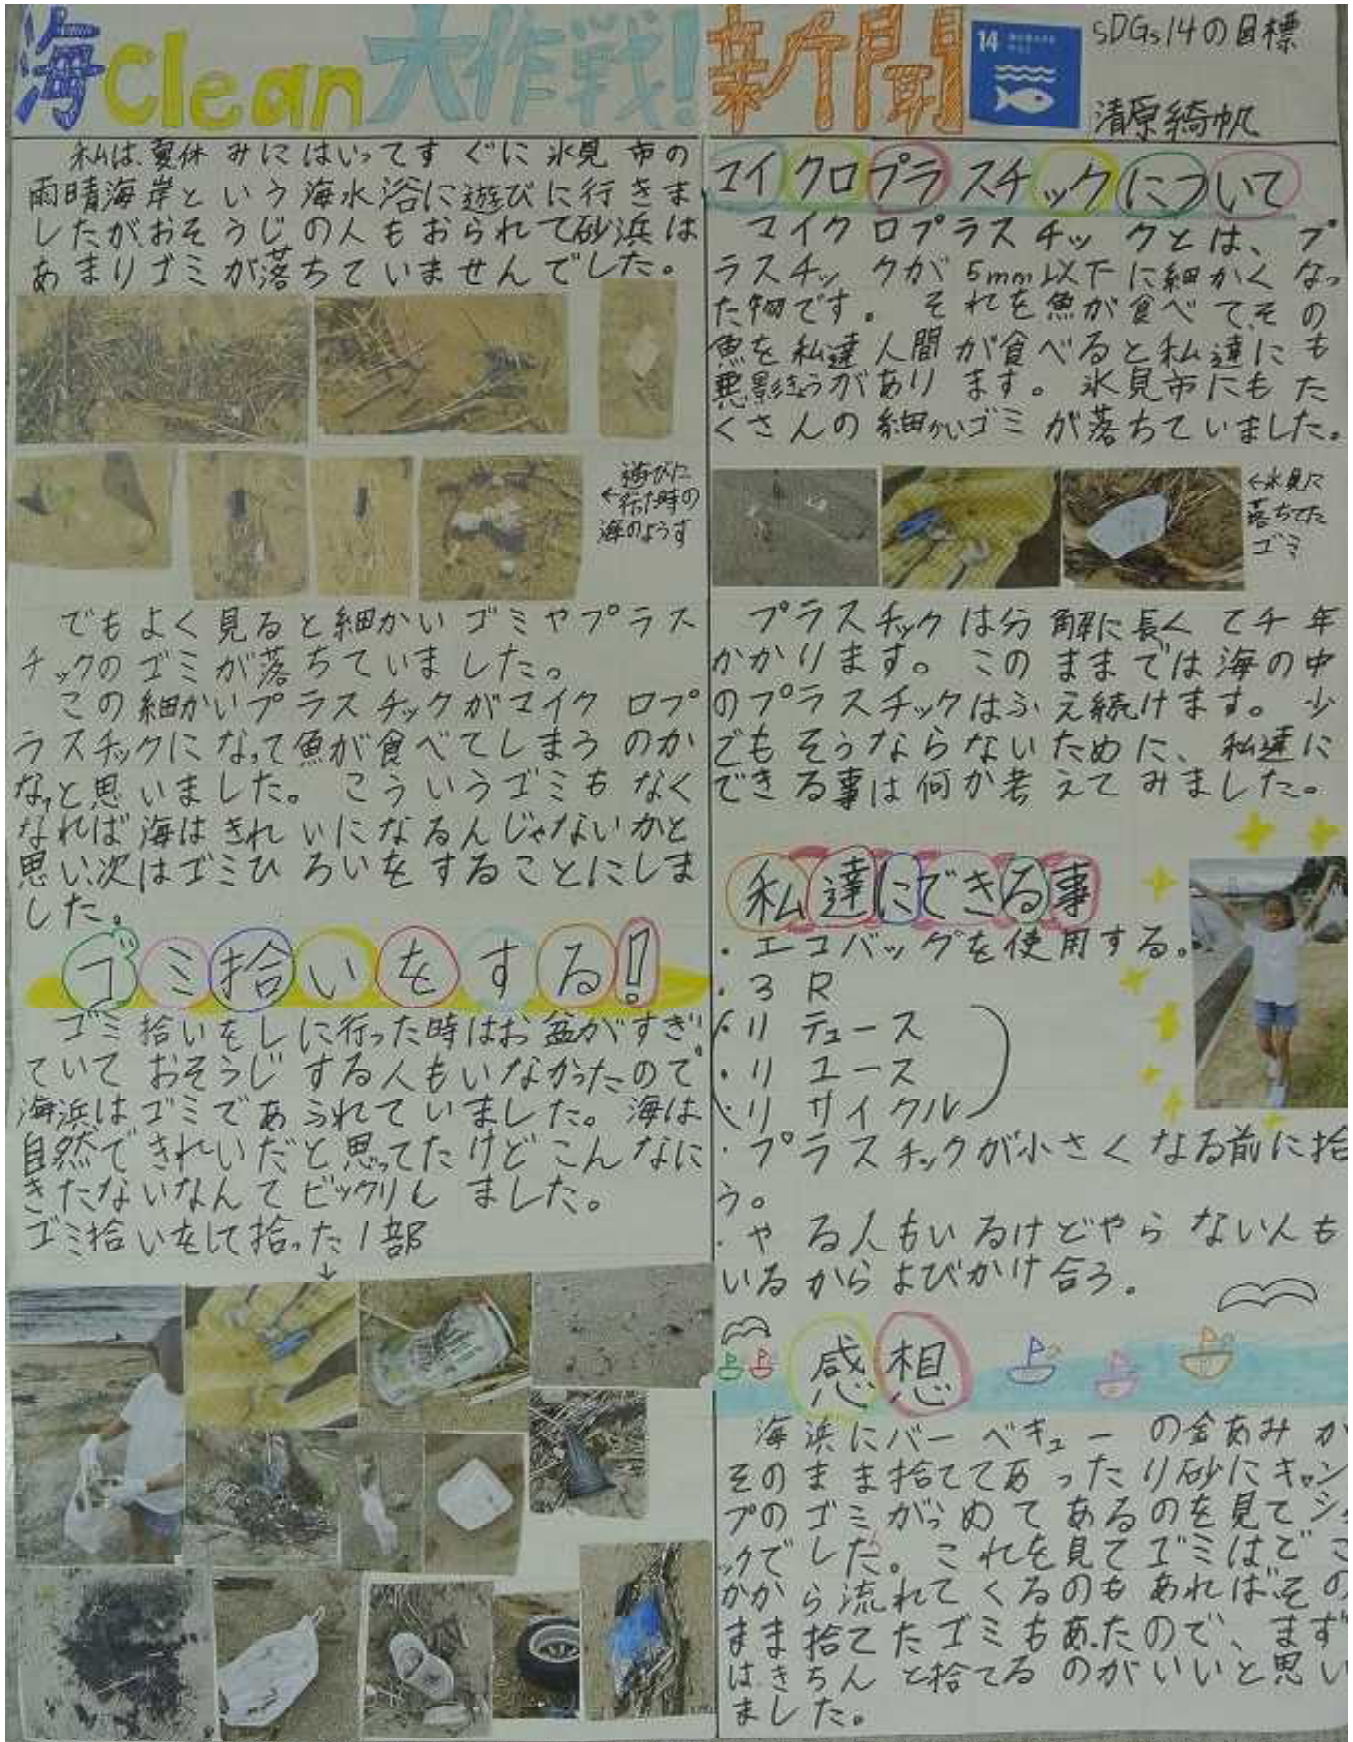 海Clean大作戦!新聞
14
SDGs14の目標
清原綺帆
私は、夏休みにはいってすぐに氷見市の
雨晴海岸という海水浴に遊びに行きま
したがおそうじの人もおられて砂浜は
あまりゴミが落ちていませんでした。
遊びに
←行った時の
海のようす
でもよく見ると細かいゴミやプラス
チックのゴミが落ちていました。
この細かいプラスチックがマイクロプ
ラスチックになって魚が食べてしまうのか
なっと思いました。こういうゴミもなく
なれば海はきれいになるんじゃないかと
思い次はゴミひろいをすることにしま
した。
ゴミ拾いをする!
ゴミ拾いをしに行った時はお盆がすぎ
ていておそうじする人もいなかったので
海浜はゴミであふれていました。海は
自然できれいだと思ってたけどこんなに
きたないなんてビックリしました。
ゴミ拾いをして拾った1部
↓
マイクロプラスチックについて
マイクロプラスチックとは、プ
ラスチックが5mm以下に細かくなっ
た物です。それを魚が食べて、その
魚を私達人間が食べると私達にも
悪影きょうがあります。氷見市にもた
くさんの細かいゴミが落ちていました。
←氷見に
落ちてた
ゴミ
プラスチックは分解に長くて千年
かかります。このままでは海の中
のプラスチックはふえ続けます。少し
でもそうならないために、私達に
できる事は何か考えてみました。
私達にできる事
・エコバッグを使用する。
・3R
・リデュース
・リユース
・リサイクル
・プラスチックが小さくなる前に拾
う。
・やる人もいるけどやらない人も
いるからよびかけ合う。
感想
海浜にバーベキューの金あみが
そのまま捨ててあったり砂にキャン
プのゴミがうめてあるのを見てショ
ックでした。これを見てゴミはどこ
かから流れてくるのもあればその
まま捨てたゴミもあったので、まず
はきちんと捨てるのがいいと思い
ました。